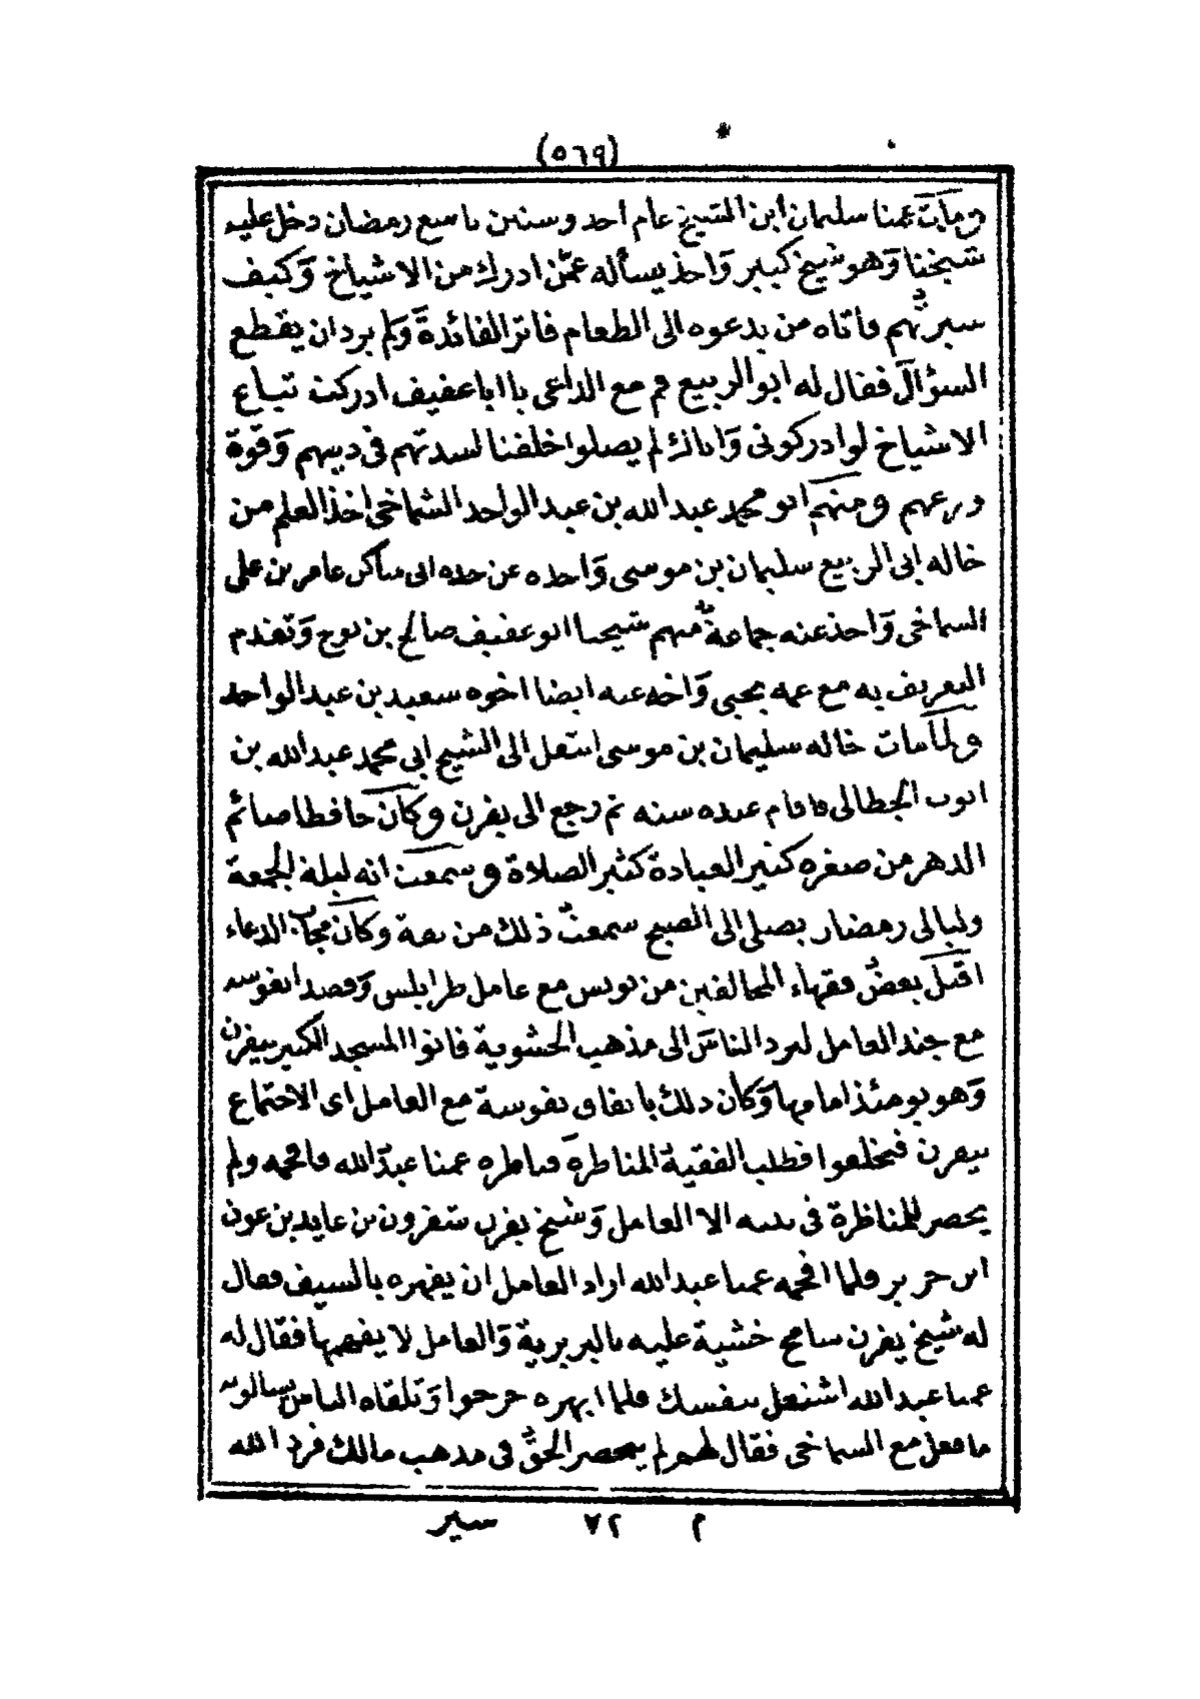 (٥٦٩)
ومات عمنا سليمان ابن الشيخ عام احد وستين تاسع رمضان دخل عليه
شيخنا وهو شيخ كبير واخذ يسأله عمّن ادرك من الاشياخ وكيف
سيرتهم فاتاه من يدعوه الى الطعام فاثر الفائدة ولم يرد ان يقطع
السؤال فقال له ابو الربيع قم مع الداعى يا ابا عفيف ادركت تباع
الاشياخ لو ادركونى واياك لم يصلوا خلفنا لشدتهم فى دينهم وقوة
ورعهم ومنهم ابو محمد عبد الله بن عبد الواحد الشماخى اخذ العلم من
خاله ابى الربيع سليمان بن موسى واخذه عن جده ابى ساكن عامر بن على
الشماخى واخذ عنه جماعة منهم شيخنا ابو عفيف صالح بن نوح وتقدم
التعريف به مع عمه يحيى واخذ عنه ايضا اخوه سعيد بن عبد الواحد
ولما مات خاله سليمان بن موسى انتقل الى الشيخ ابى محمد عبد الله بن
ايوب الجطالى فاقام عنده سنه ثم رجع الى يفرن وكان حافظا صائم
الدهر من صغره كثير العبادة كثير الصلاة وسمعت انه ليلة الجمعة
وليالى رمضان يصلى الى الصبح سمعت ذلك من ثقة وكان مجاب الدعاء
اقبل بعض فقهاء المخالفين من تونس مع عامل طرابلس وقصدا نفوسه
مع جند العامل ليرد الناس الى مذهب الحشوية فاتوا المسجد الكبير بيفرن
وهو يومئذ امامها وكان ذلك باتفاق نفوسة مع العامل اى الاجتماع
بيفرن فتخلفوا فطلب الفقية المناظرة فناظره عمنا عبد الله فافحمه ولم
يحضر للمناظرة فى بيته الا العامل وشيخ يفرن شقرون بن عايد بن عون
ابن حرير فلما افحمه عمنا عبد الله اراد العامل ان يقهره بالسيف فقال
له شيخ يفرن سامح خشية عليه بالبربرية والعامل لا يفهمها فقال له
عمنا عبد الله اشتغل بنفسك فلما ابهره خرجوا وتلقاه الناس يسالونه
ما فعل مع الشماخى فقال لهم لم ينحصر الحق فى مذهب مالك فرد الله
م ٧٢ سير